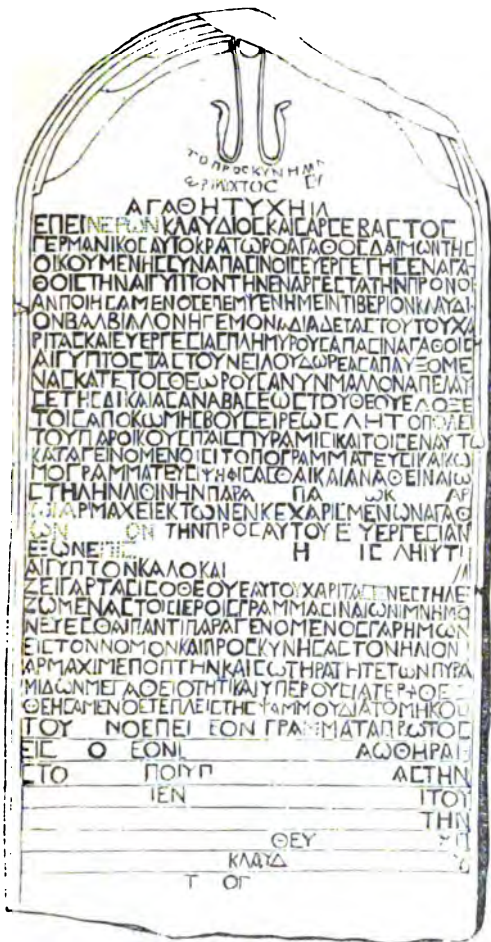 ΤΟΠΡΟΣΚΥΝΗΜΑ
ΑΓΑΘΗΤΥΧΗΙ
ΕΠΕΙΝΕΡΩΝΚΛΑΥΔΙΟϹΚΑΙϹΑΡϹΕΒΑϹΤΟϹ
ΓΕΡΜΑΝΙΚΟϹΑΥΤΟΚΡΑΤΩΡΟΑΓΑΘΟϹΔΑΙΜΩΝΤΗϹ
ΟΙΚΟΥΜΕΝΗϹϹΥΝΑΠΑϹΙΝΟΙϹΕΥΕΡΓΕΤΗϹΕΝΑΓΑ
ΘΟΙϹΤΗΝΑΙΓΥΠΤΟΝΤΗΝΕΝΑΡΓΕϹΤΑΤΗΝΠΡΟΝΟΙ
ΑΝΠΟΙΗϹΑΜΕΝΟϹΕΠΕΜΨΕΝΗΜΕΙΝΤΙΒΕΡΙΟΝΚΛΑΥΔΙ
ΟΝΒΑΛΒΙΛΛΟΝΗΓΕΜΟΝΑΔΙΑΔΕΤΑϹΤΟΥΤΟΥΧΑ
ΡΙΤΑϹΚΑΙΕΥΕΡΓΕϹΙΑϹΠΛΗΜΥΡΟΥϹΑΠΑϹΙΝΑΓΑΘΟΙϹΗ
ΑΙΓΥΠΤΟϹΤΑϹΤΟΥΝΕΙΛΟΥΔΩΡΕΑϹΕΠΑΥΞΟΜΕ
ΝΑϹΚΑΤΕΤΟϹΘΕΩΡΟΥϹΑΝΥΝΜΑΛΛΟΝΑΠΕΛΑΥ
ϹΕΤΗϹΔΙΚΑΙΑϹΑΝΑΒΑϹΕΩϹΤΟΥΘΕΟΥΕΔΟΞΕ
ΤΟΙϹΑΠΟΚΩΜΗϹΒΟΥϹΕΙΡΕΩϹ ΛΗΤΟΠΟΛΕΙ
ΤΟΥΠΑΡΟΙΚΟΥϹΙΤΑΙϹΠΥΡΑΜΙϹΙΚΑΙΤΟΙϹΕΝΑΥΤΩ
ΚΑΤΑΓΕΙΝΟΜΕΝΟΙϹΙΤΟΠΟΓΡΑΜΜΑΤΕΥϹΙΚΑΙΚΩ
ΜΟΓΡΑΜΜΑΤΕΥϹΙΨΗΦΙϹΑϹΘΑΙΚΑΙΑΝΑΘΕΙΝΑΙϹ
ϹΤΗΛΗΝΛΙΘΙΝΗΝΠΑΡΑ ΩΚ ΑΡ
ΑΡΜΑΧΕΙΕΚΤΩΝΕΝΚΕΧΑΡΙϹΜΕΝΩΝΑΓΑΘ
ΩΝ ΟΝ ΤΗΝΠΡΟϹΑΥΤΟΥ Ε ΥΕΡΓΕϹΙΑΝ
ΕΞΩΝΕΠΙϹ Η
ΑΙΓΥΠΤΟΝΚΑΛΟΚΑΙ
ΖΕΙΓΑΡΤΑϹΙϹΟΘΕΟΥϹΑΥΤΟΥΧΑΡΙΤΑϹΕΝΕϹΤΗΛΕ
ΖΩΜΕΝΑϹΤΟΙϹΙΕΡΟΙϹΓΡΑΜΜΑϹΙΝΑΙΩΝΙΜΝΗΜΟ
ΝΕΥΕϹΘΑΙΠΑΝΤΙΠΑΡΑΓΕΝΟΜΕΝΟϹΓΑΡΗΜΩΝ
ΕΙϹΤΟΝΝΟΜΟΝΚΑΙΠΡΟϹΚΥΝΗϹΑϹΤΟΝΗΛΙΟΝ
ΑΡΜΑΧΙΝΕΠΟΠΤΗΝΚΑΙϹΩΤΗΡΑΤΗΤΕΤΩΝΠΥΡΑ
ΜΙΔΩΝΜΕΓΑΘΕΙΟΤΗΤΙΚΑΙΥΠΕΡΟΥϹΙΑΤΕΡΦΘΕΙϹ
ΘΕΗϹΑΜΕΝΟϹΤΕΠΛΕΙϹΤΗϹΨΑΜΜΟΥΔΙΑΤΟΜΗΚΟϹ
ΤΟΥ ΝΟΕΠΕΙ ΕΟΝ ΓΡΑΜΜΑΤΑΠΡΩΤΟϹ
ΕΙϹ Ο ΕΟΝΙ ΑΩΘΗΡΑΙ
ϹΤΟ ΠΟΠΥΠ ΑϹΤΗΝ
ΙΕΝ ΙΤΟΥ
ΤΗΝ
ΘΕΥ
ΚΛΑΥΔ
Τ ΟΓ